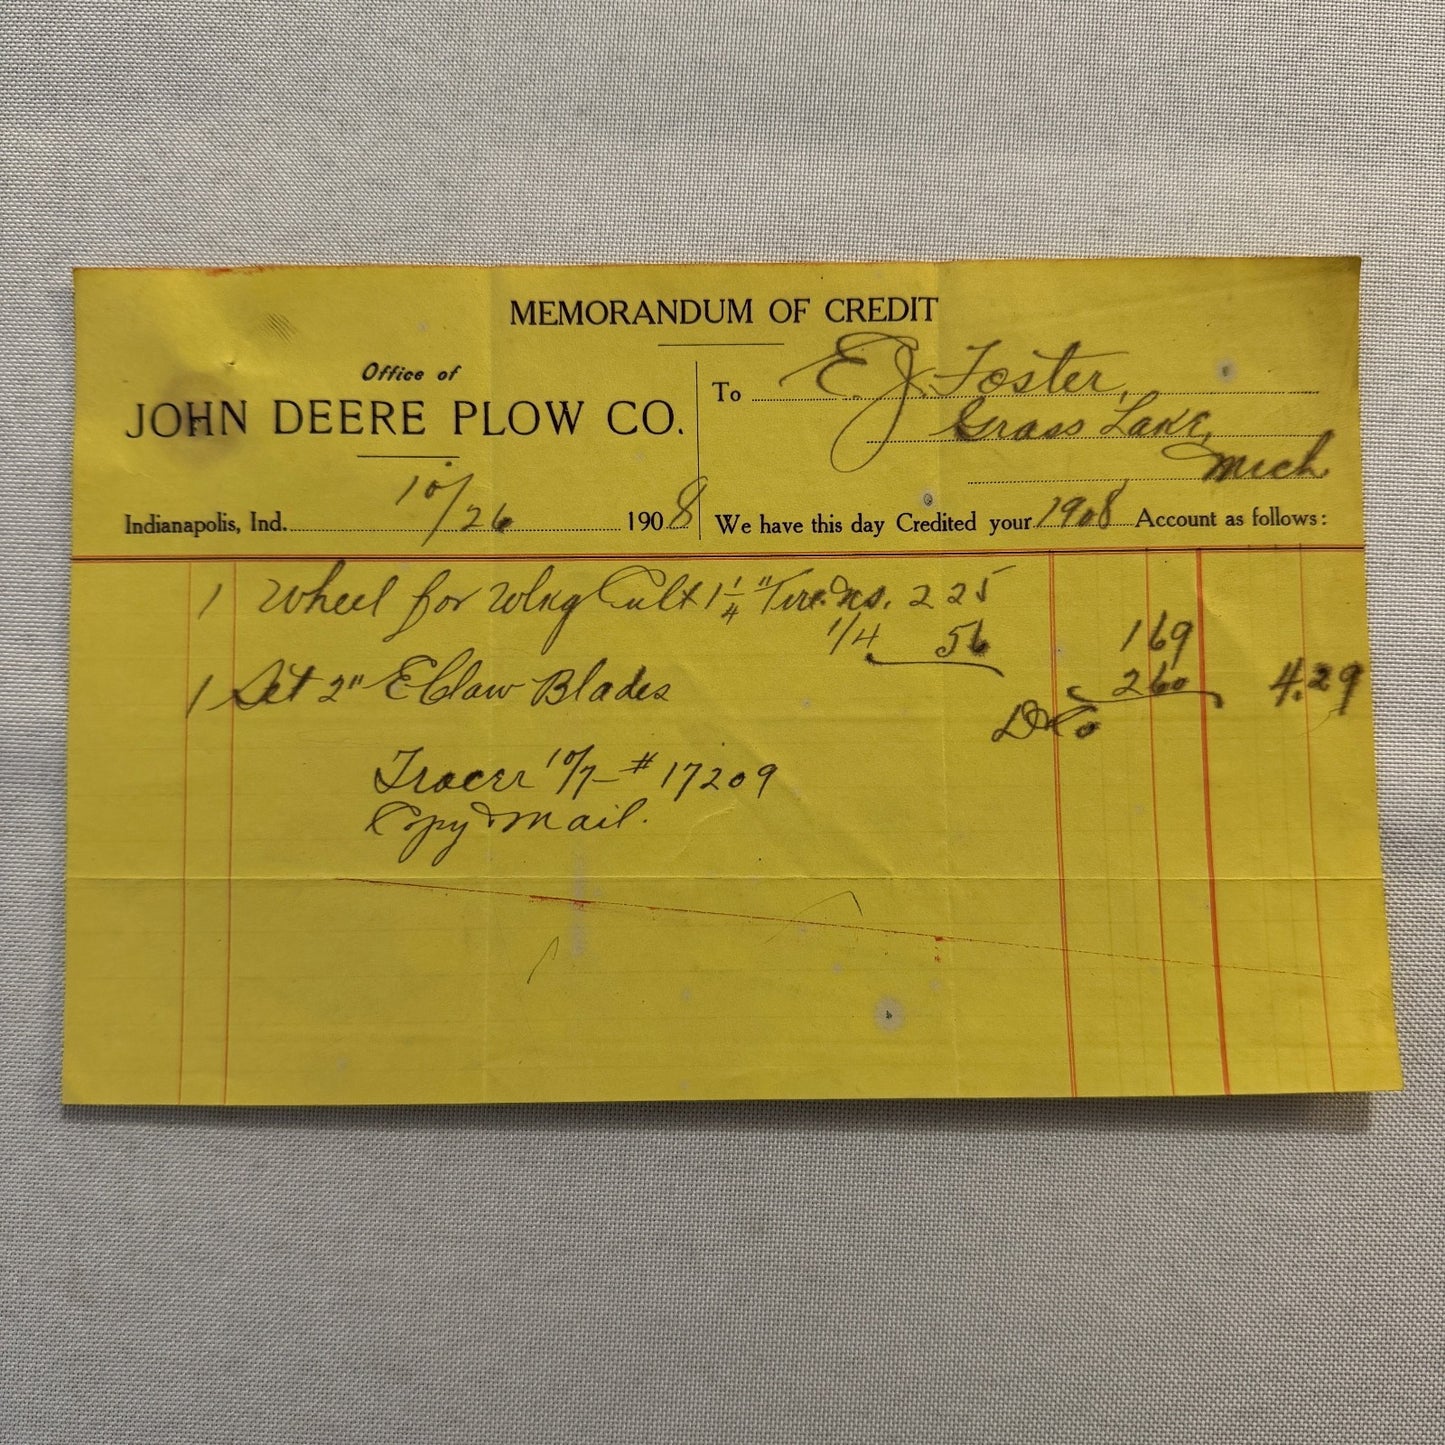 MEMORANDUM OF CREDIT
Office of
JOHN DEERE PLOW CO.
Indianapolis, Ind. 10/26 1908
To E. J. Foster,
Grass Lake,
Mich
We have this day Credited your 1908 Account as follows:
1 Wheel for Wlkg Cult 1 1/4" Tire 225
1/4 56 169
1 Set 2" E Claw Blades 260 4.29
Tracer 10/7 - # 17209
Copy Mail.